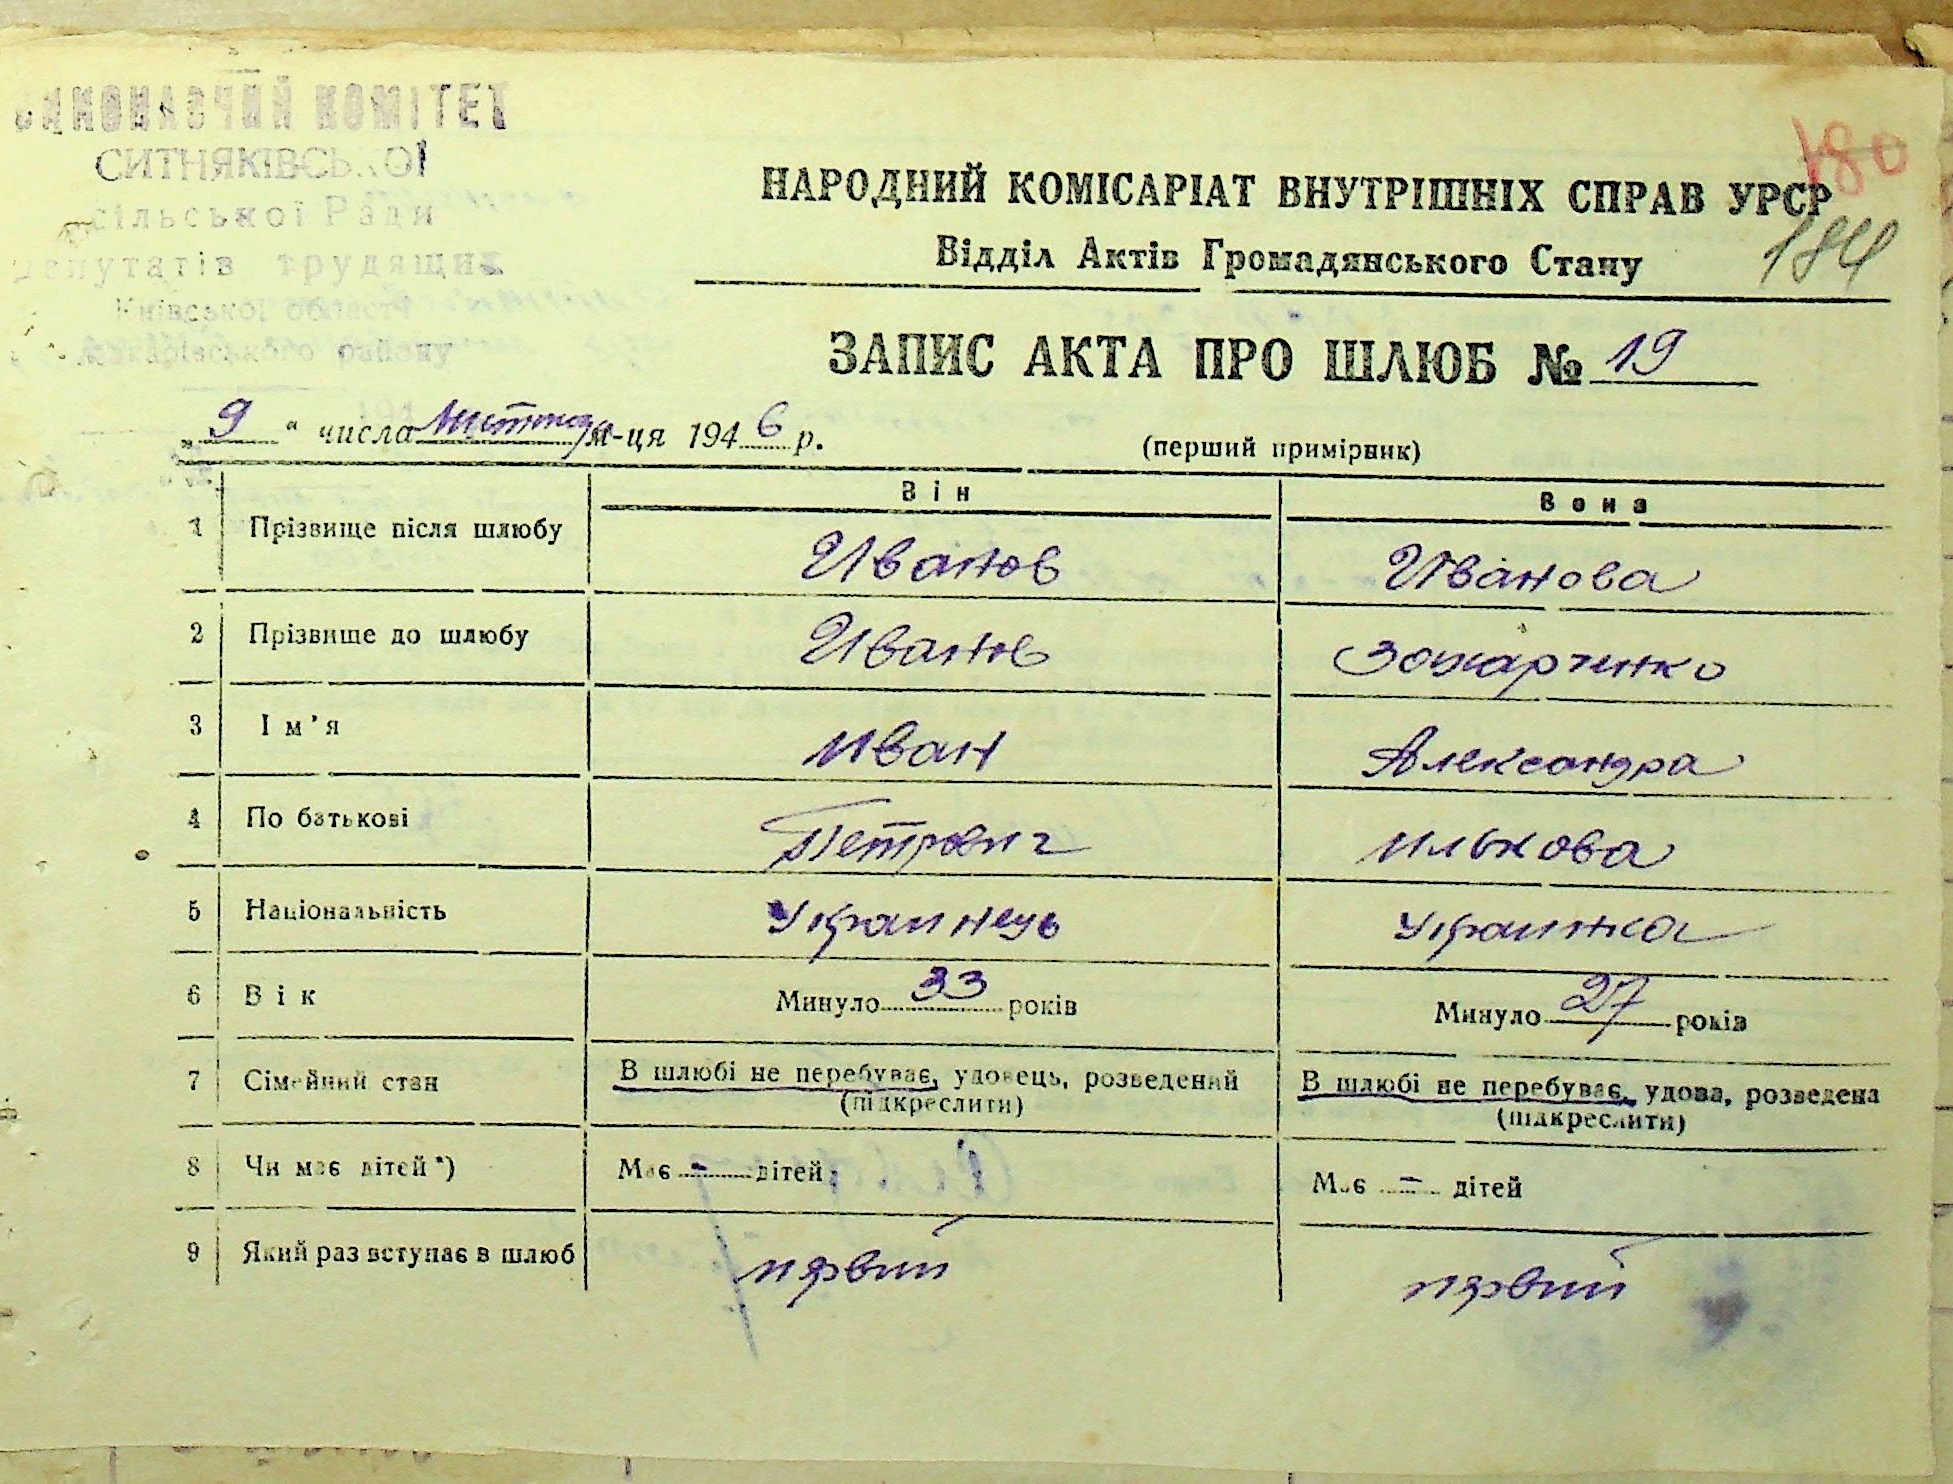 ВИКОНАВЧИЙ КОМІТЕТ
СИТНЯКІВСЬКОЇ
сільської Ради
депутатів трудящих
Київської області
Макарівського району
180
184
НАРОДНИЙ КОМІСАРІАТ ВНУТРІШНІХ СПРАВ УРСР
Відділ Актів Громадянського Стану
ЗАПИС АКТА ПРО ШЛЮБ № 19
„ 9 “ числа м-ця 194 6 р.
(перший примірник)
Він Вона
1 Прізвище після шлюбу Иванов Иванова
2 Прізвище до шлюбу Иванов
3 Ім'я Иван Александра
4 По батькові Петрович Илькова
5 Національність Украинець Украинка
6 Вік Минуло 33 років Минуло 27 років
7 Сімейний стан В шлюбі не перебуває, удовець, розведений В шлюбі не перебуває, удова, розведена
(підкреслити) (підкреслити)
8 Чи має дітей *) Має - дітей Має - дітей
9 Який раз вступає в шлюб первий первий